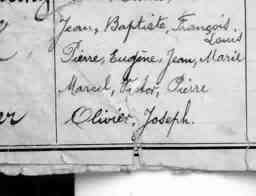 Jean, Baptiste, François,
Louis
Pierre, Eugène, Jean, Marie
Marcel, Victor, Pierre
Olivier, Joseph.